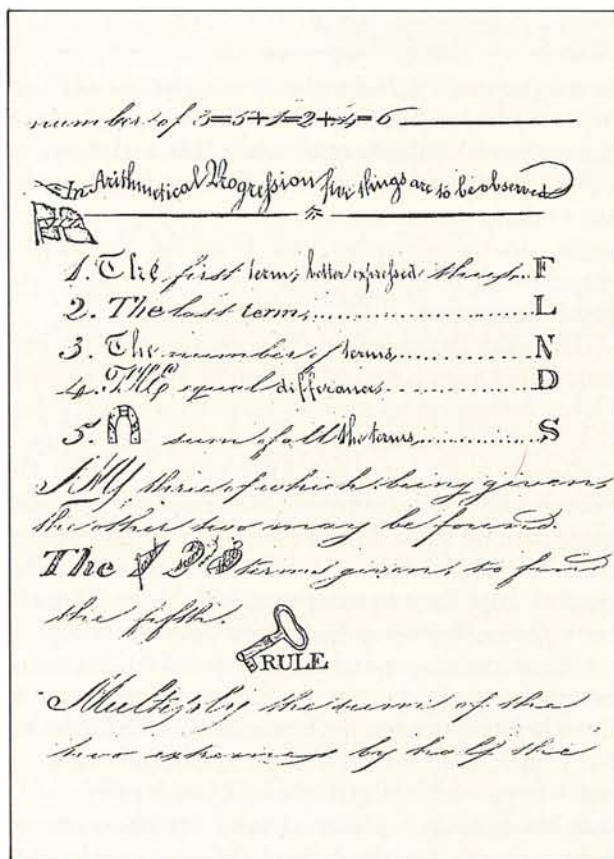 number of 3=5+1=2+4=6
In Arithmetical Progression five things are to be observed
1. The first term, better expressed thus, F
2. The last term, ............ L
3. The number of terms ............ N
4. THE equal differences ............ D
5. sum of all the terms ............ S
ANY three of which being given,
the other two may be found.
The terms given, to find
the fifth.
RULE
Multiply the sum of the
two extremes by half the